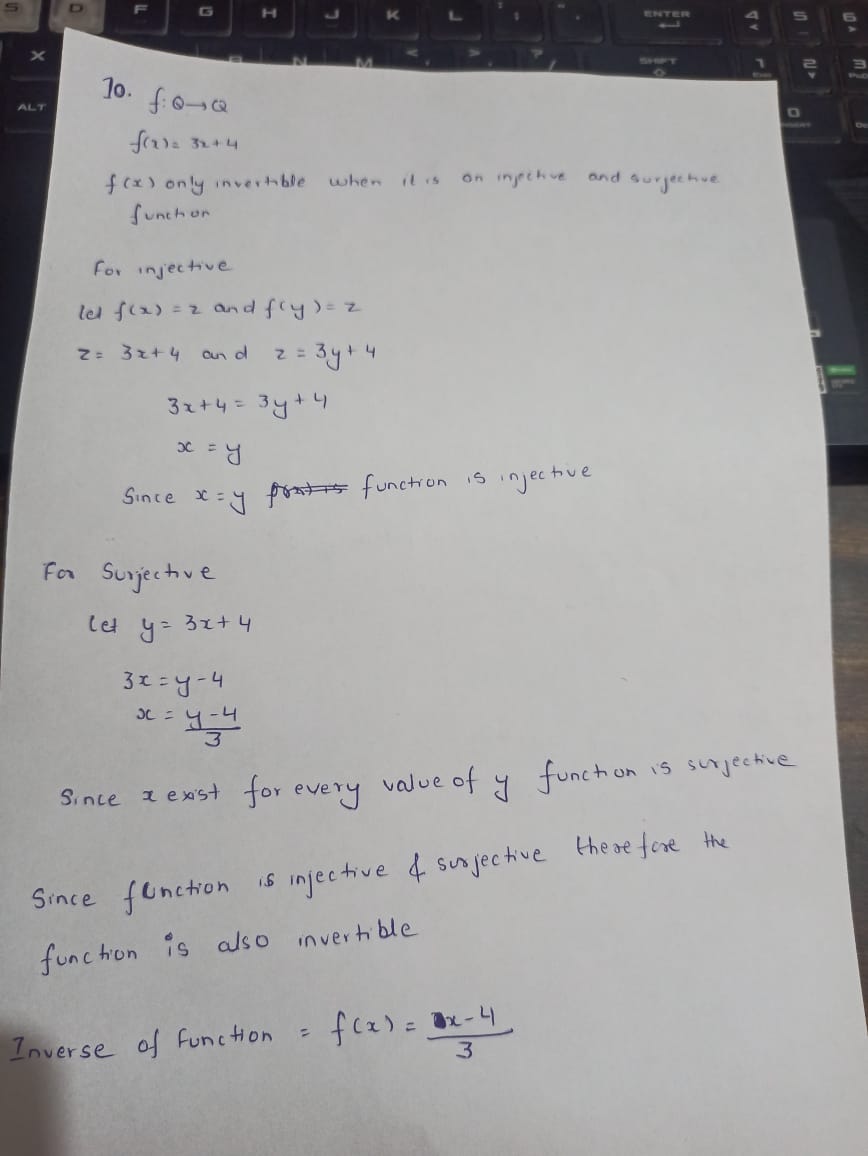 S D F G H J K L : ; " ' ENTER 4 5 6
X N M < > ? / SHIFT 1 2 3
ALT End PgD
0
10. f: Q→Q
f(x) = 3x+4
f(x) only invertible when it is an injective and surjective
function
For injective
let f(x) = z and f(y) = z
z = 3x+4 and z = 3y+4
3x+4 = 3y+4
x = y
Since x=y function is injective
For Surjective
Let y = 3x+4
3x = y-4
x = y-4
3
Since x exist for every value of y function is surjective
Since function is injective & surjective therefore the
function is also invertible
Inverse of function = f(x) = x-4
3